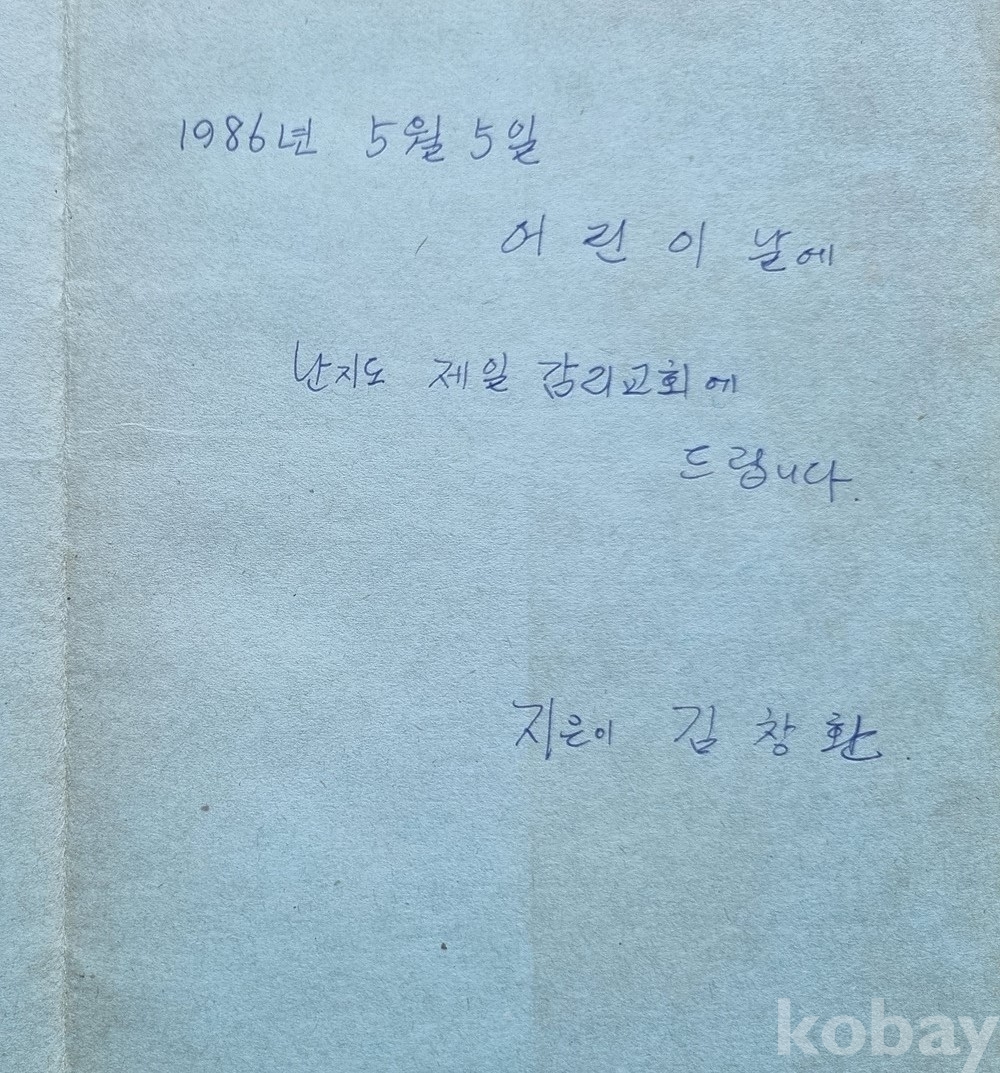 1986년 5월 5일
어린이 날에
난지도 제일 감리교회에
드립니다.
지은이 김창환.
kobay